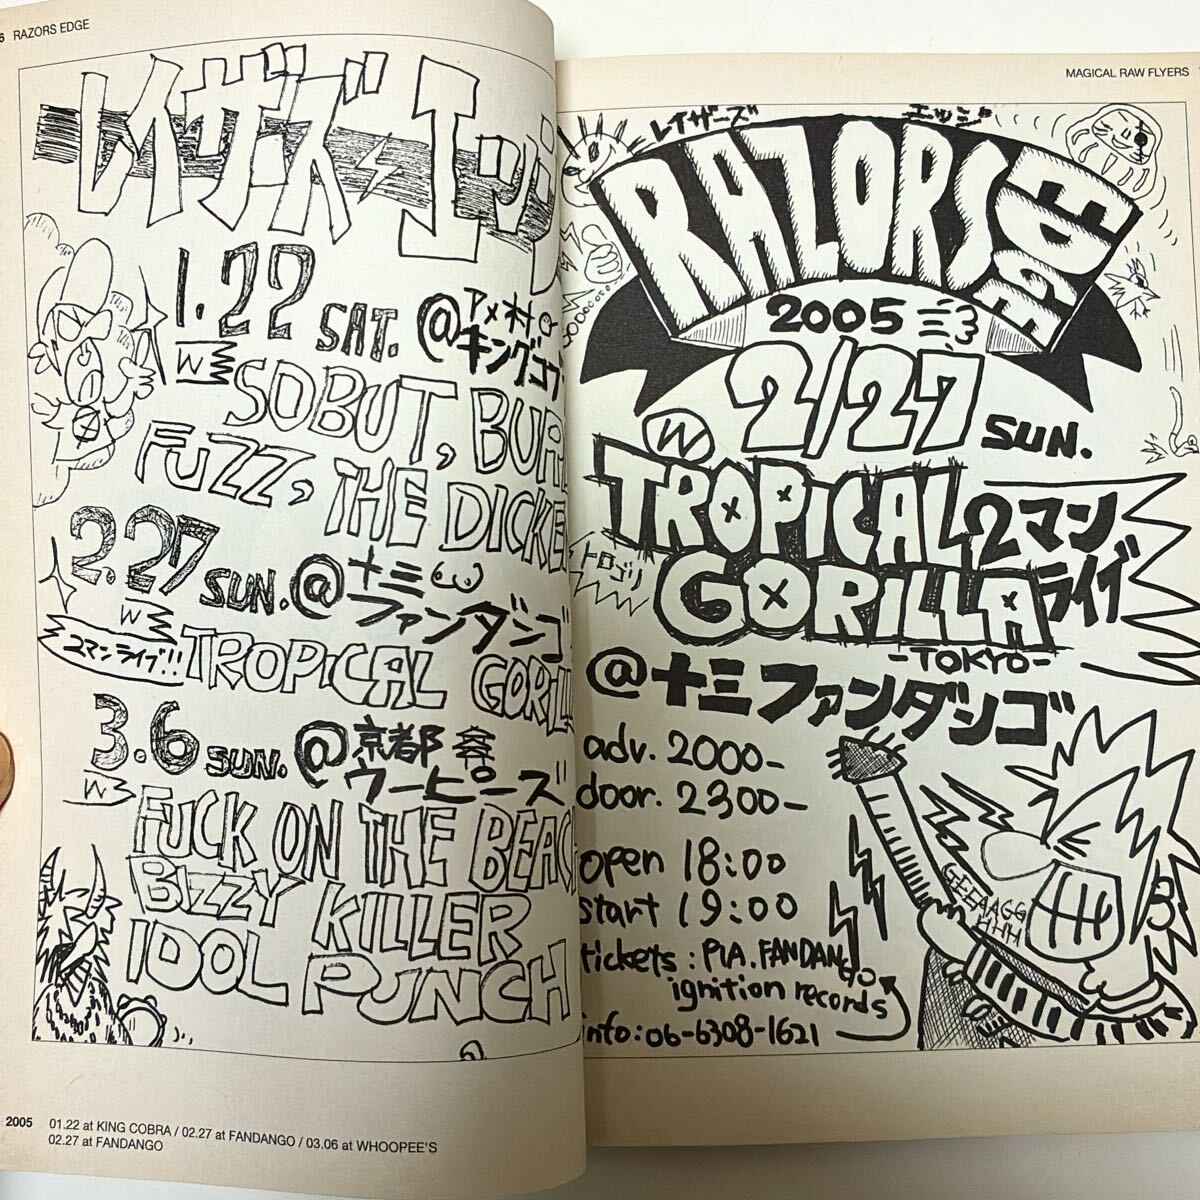 6 RAZORS EDGE
レイザーズエッジ
1.22 SAT. @アメ村
キングコブ
W
SOBUT, BUR
FUZZ, THE DICKE
2.27 SUN. @十三
ファンダンゴ
W
2マンライブ!!
TROPICAL GORILL
3.6 SUN. @京都
ウーピーズ
W
FUCK ON THE BEAC
BIZZY KILLER
IDOL PUNCH
2005 01.22 at KING COBRA / 02.27 at FANDANGO / 03.06 at WHOOPEE'S
02.27 at FANDANGO
MAGICAL RAW FLYERS
レイザーズ エッジ
RAZORS EDGE
2005
2/27 SUN.
W
TROPICAL
GORILLA
2マン
ライブ
トロゴリ
-TOKYO-
@十三ファンダンゴ
adv. 2000-
door. 2300-
open 18:00
start 19:00
tickets: PIA. FANDANGO
ignition records
info: 06-6308-1621
GEEAAGG
HHH